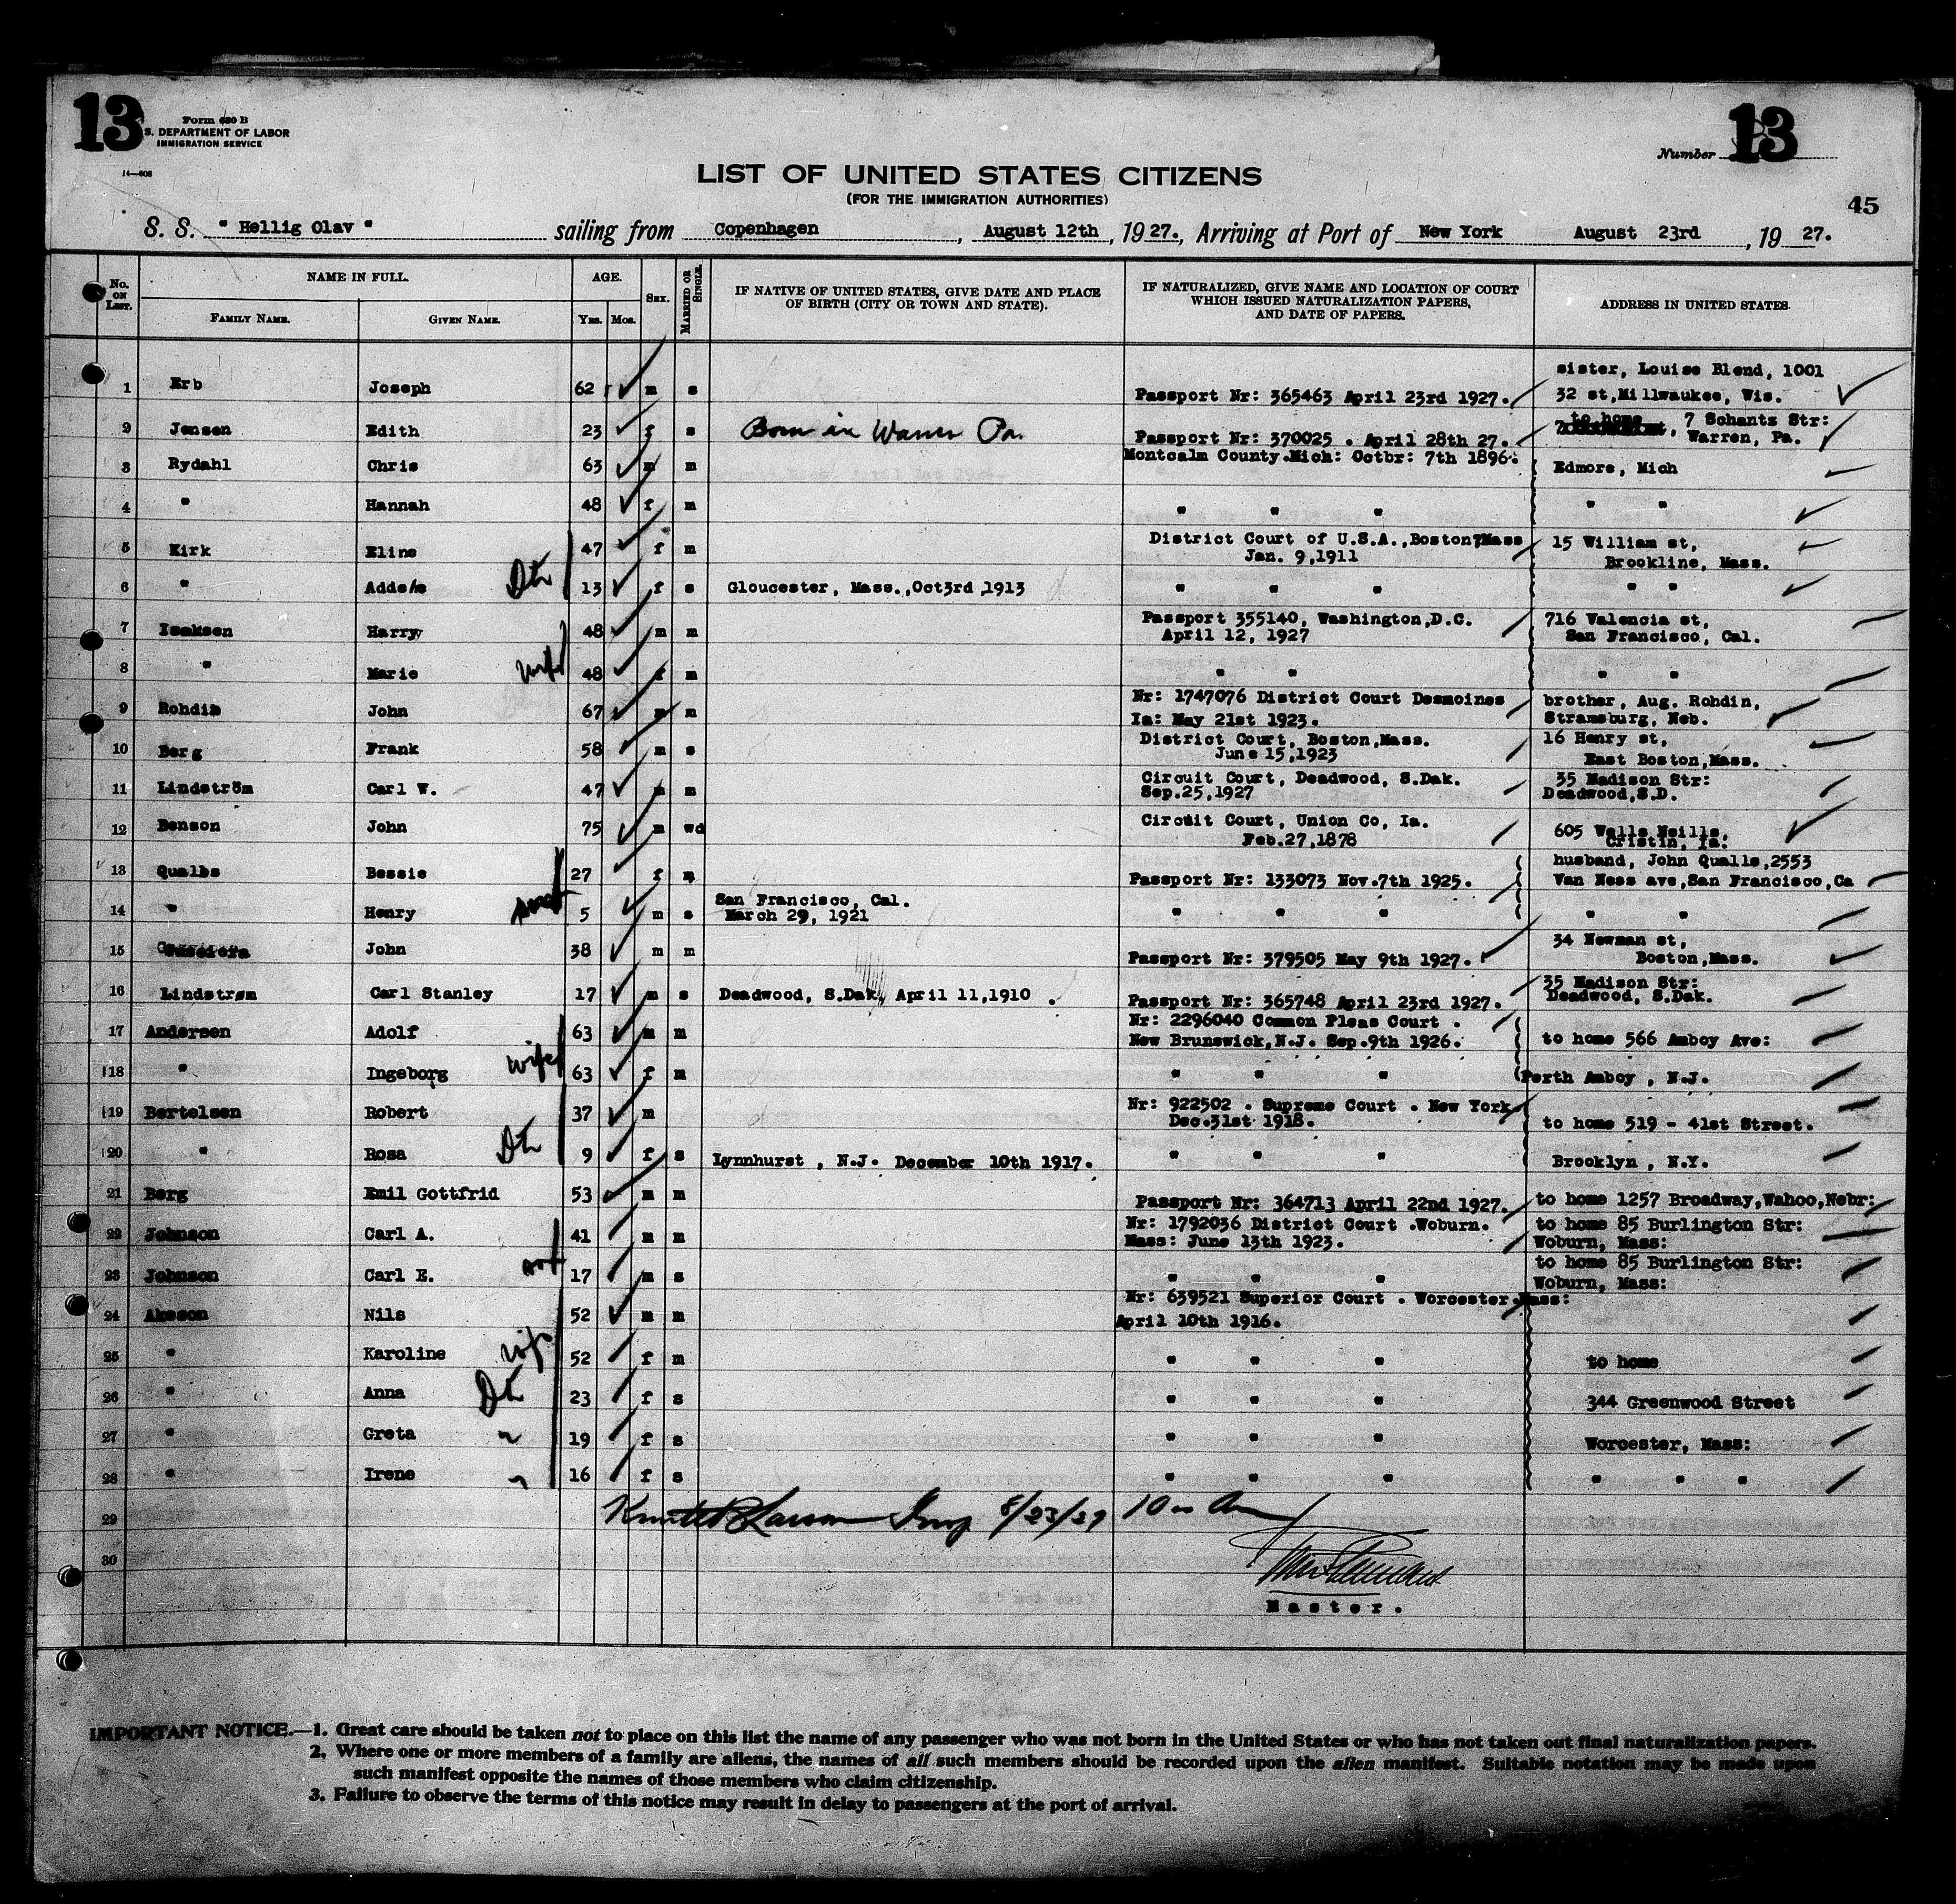 13
Form 630 B
S. DEPARTMENT OF LABOR
IMMIGRATION SERVICE
14—608
Number 13
45
LIST OF UNITED STATES CITIZENS
(FOR THE IMMIGRATION AUTHORITIES)
S. S. " Hellig Olav " sailing from Copenhagen, August 12th, 1927., Arriving at Port of New York August 23rd, 19 27.
No. ON LIST. NAME IN FULL. FAMILY NAME. GIVEN NAME. AGE. YRS. MOS. SEX. MARRIED OR SINGLE. IF NATIVE OF UNITED STATES, GIVE DATE AND PLACE OF BIRTH (CITY OR TOWN AND STATE). IF NATURALIZED, GIVE NAME AND LOCATION OF COURT WHICH ISSUED NATURALIZATION PAPERS, AND DATE OF PAPERS. ADDRESS IN UNITED STATES.
1 Erb Joseph 62 m s Passport Nr: 365463 April 23rd 1927. sister, Louise Blend, 1001 32 st,Millwaukee, Wis.
2 Jensen Edith 23 f s Born in Warren Pa. Passport Nr: 370025 . April 28th 27. to home, 7 Schantz Str: Warren, Pa.
3 Rydahl Chris 63 m m Montcalm County.Mich: Octbr: 7th 1896. Edmore, Mich
4 " Hannah 48 f m " " " " "
5 Kirk Eline 47 f m District Court of U.S.A.,Boston,Mass Jan. 9,1911 15 William st, Brookline, Mass.
6 " Dtr 13 f s Gloucester, Mass.,Oct3rd,1913 " " " " "
7 Isaksen Harry 48 m m Passport 355140, Washington,D.C. April 12, 1927 716 Valencia st, San Francisco, Cal.
8 " Marie wife 48 f m " " " "
9 Rohdin John 67 m m Nr: 1747076 District Court Desmoines Ia: May 21st 1923. brother, Aug. Rohdin, Stramsburg, Neb.
10 Berg Frank 58 m s District Court, Boston,Mass. June 15,1923 16 Henry st, East Boston,Mass.
11 Lindström Carl W. 47 m m Circuit Court, Deadwood, S.Dak. Sep.25,1927 35 Madison Str: Deadwood,S.D.
12 Benson John 75 m wd Circuit Court, Union Co, Ia. Feb.27,1878 605 Walls Neills, Cristin, Ia.
13 Qualls Bessie 27 f m Passport Nr: 133073 Nov.7th 1925. husband, John Qualls,2553 Van Ness ave,San Francisco,Ca
14 " Henry son 5 m s San Francisco, Cal. March 29, 1921 " " " " "
15 John 38 m m Passport Nr: 379505 May 9th 1927. 34 Newman st, Boston,Mass.
16 Lindstrøm Carl Stanley 17 m s Deadwood, S.Dak, April 11,1910 . Passport Nr: 365748 April 23rd 1927. 35 Madison Str: Deadwood, S.Dak.
17 Andersen Adolf 63 m m Nr: 2296040 Common Pleas Court . New Brunswick,N.J. Sep.9th 1926. to home 566 Amboy Ave:
18 " Ingeborg wife 63 f m " " " Perth Amboy , N.J.
19 Bertelsen Robert 37 m Nr: 922502 . Supreme Court . New York Dec.31st 1918. to home 519 - 41st Street.
20 " Rosa Dtr 9 f s Lynnhurst , N.J. December 10th 1917. " " " Brooklyn , N.Y.
21 Berg Emil Gottfrid 53 m m Passport Nr: 364713 April 22nd 1927. to home 1257 Broadway,Wahoo,Nebr:
22 Johnson Carl A. 41 m m Nr: 1792036 District Court .Woburn. Mass: June 13th 1923. to home 85 Burlington Str: Woburn, Mass:
23 Johnson Carl E. son 17 m s " " " to home 85 Burlington Str: Woburn, Mass:
24 Akeson Nils 52 m m Nr: 639521 Superior Court . Worcester.Mass: April 10th 1916.
25 " Karoline wife 52 f m " " " to home
26 " Anna Dtr 23 f s " " " 344 Greenwood Street
27 " Greta " 19 f s " " " Worcester, Mass:
28 " Irene " 16 f s " " " " " "
29 Larson Insp 8/23/27 10 Am
30
Master.
IMPORTANT NOTICE.—1. Great care should be taken not to place on this list the name of any passenger who was not born in the United States or who has not taken out final naturalization papers.
2. Where one or more members of a family are aliens, the names of all such members should be recorded upon the alien manifest. Suitable notation may be made upon
such manifest opposite the names of those members who claim citizenship.
3. Failure to observe the terms of this notice may result in delay to passengers at the port of arrival.